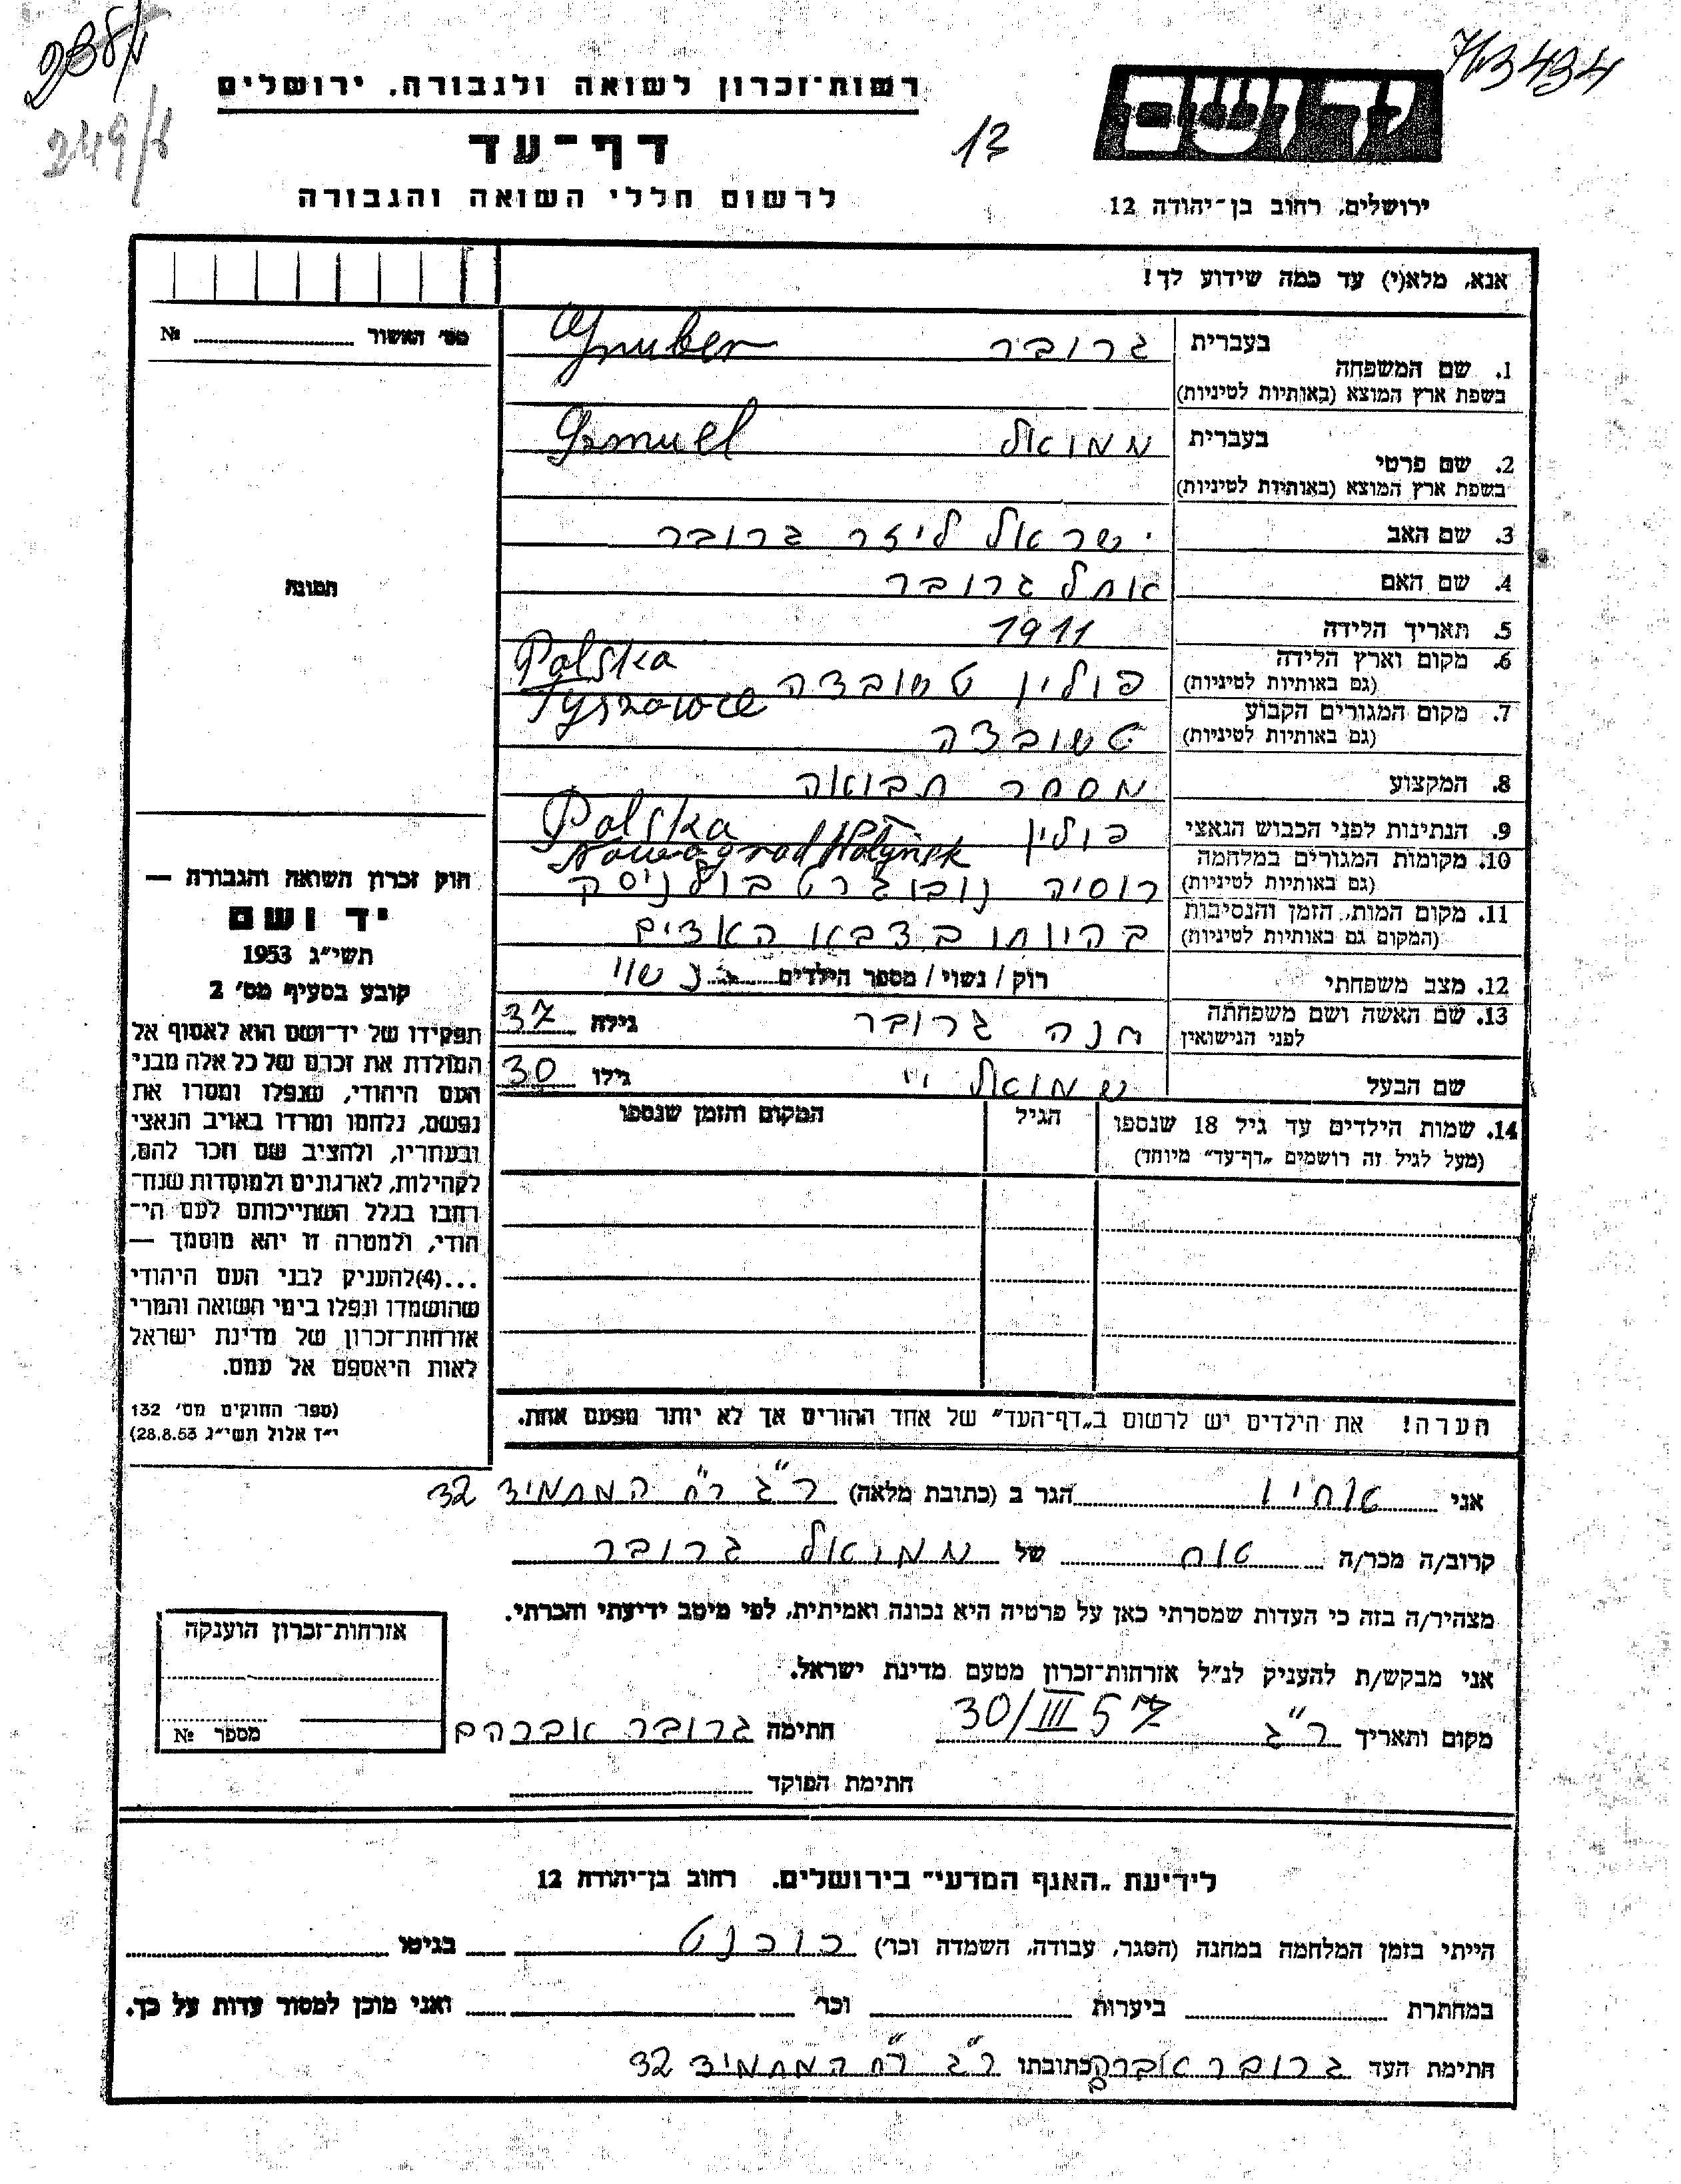 238/א
249/א
713434
רשות־זכרון לשואה ולגבורה. ירושלים
יד ושם
דף־עד
13
לרשום חללי השואה והגבורה
ירושלים, רחוב בן־יהודה 12
אנא, מלא(י) עד כמה שידוע לך!
מס׳ האשור № 
1. שם המשפחה בעברית גרובר Gruber
בשפת ארץ המוצא (באותיות לטיניות)
2. שם פרטי בעברית שמואל
בשפת ארץ המוצא (באותיות לטיניות)
3. שם האב ישראל ליזר גרובר
4. שם האם גרובר
5. תאריך הלידה 1911
6. מקום וארץ הלידה פולין טשובצה Polska
(גם באותיות לטיניות)
7. מקום המגורים הקבוע טשובצה Tyszowce
(גם באותיות לטיניות)
8. המקצוע מסחר תבואה
9. הנתינות לפני הכבוש הנאצי פולין Polska
10. מקומות המגורים במלחמה רוסיה נובוגרט בולניסק Nowograd Wolynsk
(גם באותיות לטיניות)
11. מקום המות, הזמן והנסיבות בהיותו בצבא האדים
(המקום גם באותיות לטיניות)
12. מצב משפחתי רוק / נשוי / מספר הילדים נשוי
13. שם האשה ושם משפחתה חנה גרובר גילה 37
לפני הנישואין
שם הבעל שמואל יי גילו 30
14. שמות הילדים עד גיל 18 שנספו הגיל המקום והזמן שנספו
(מעל לגיל זה רושמים „דף־עד״ מיוחד)
תמונה
חוק זכרון השואה והגבורה —
יד ושם
תשי״ג 1953
קובע בסעיף מס׳ 2
תפקידו של יד־ושם הוא לאסוף אל
המולדת את זכרם של כל אלה מבני
העם היהודי, שנפלו ומסרו את
נפשם, נלחמו ומרדו באויב הנאצי
ובעוזריו, ולהציב שם וזכר להם,
לקהילות, לארגונים ולמוסדות שנח־
רבו בגלל השתייכותם לעם הי־
הודי, ולמטרה זו יהא מוסמך —
...(4)להעניק לבני העם היהודי
שהושמדו ונפלו בימי השואה והמרי
אזרחות־זכרון של מדינת ישראל
לאות היאספם אל עמם.
(ספר החוקים מס׳ 132
י״ז אלול תשי״ג 28.8.53)
הערה! את הילדים יש לרשום ב„דף־העד״ של אחד ההורים אך לא יותר מפעם אחת.
אני אחיו הגר ב (כתובת מלאה) ר״ג רח׳ המתמיד 32
קרוב/ה מכר/ה אח של שמואל גרובר
מצהיר/ה בזה כי העדות שמסרתי כאן על פרטיה היא נכונה ואמיתית, לפי מיטב ידיעתי והכרתי.
אני מבקש/ת להעניק לנ״ל אזרחות־זכרון מטעם מדינת ישראל.
מקום ותאריך ר״ג 30/III 57 חתימה גרובר אברהם
חתימת הפוקד
אזרחות־זכרון הוענקה
מספר №
לידיעת „האגף המדעי״ בירושלים. רחוב בן־יהודה 12
הייתי בזמן המלחמה במחנה (הסגר, עבודה, השמדה וכו׳) בגיטו
במחתרת ביערות וכו׳ ואני מוכן למסור עדות על כך.
חתימת העד גרובר אברהם כתובתו ר״ג רח׳ המתמיד 32